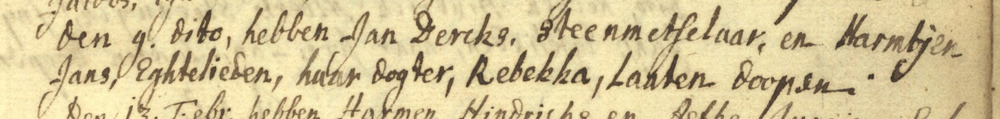 den 9. dito, hebben Jan Dercks, steenmetselaar, en Harmtjen
Jans, Eghtelieden, haar dogter, Rebekka, laaten doopen.
Den 13. Febr. hebben Harmen Hindrichs en